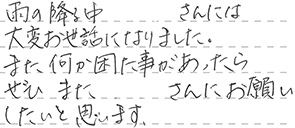 雨の降る中　　　さんには
大変お世話になりました。
また何か困た事があったら
ぜひまた　　　さんにお願い
したいと思います。